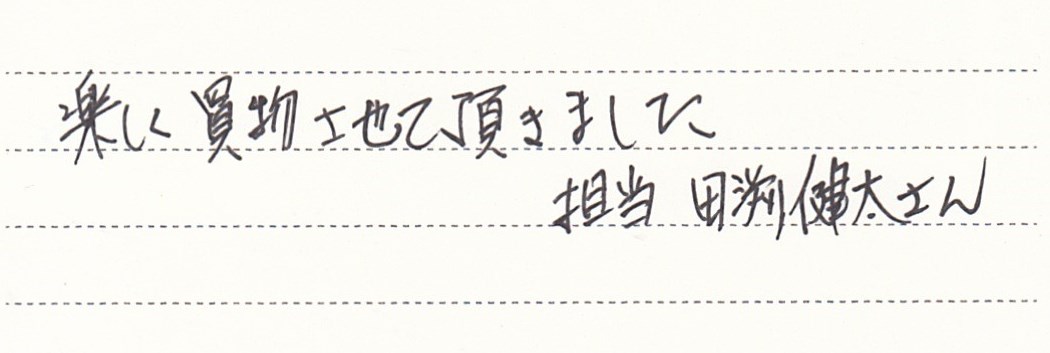 楽しく買物させて頂きました
担当 田渕健太さん